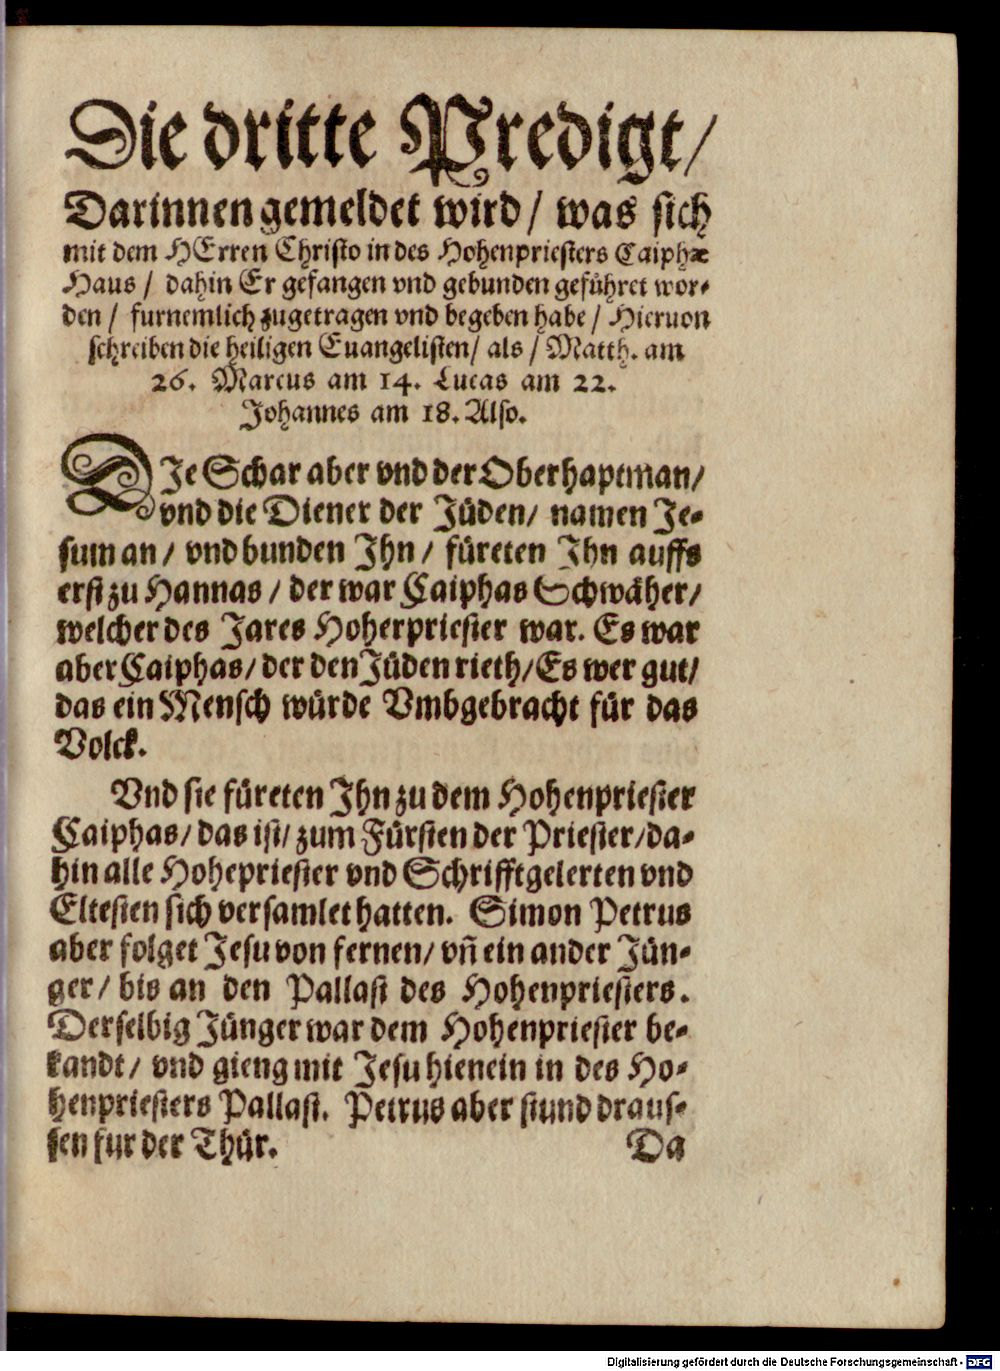 Die dritte Predigt/
Darinnen gemeldet wird/ was sich
mit dem HErren Christo in des Hohenpriesters Caiphæ
Haus/ dahin Er gefangen vnd gebunden geführet wor-
den/ furnemlich zugetragen vnd begeben habe/ Hieruon
schreiben die heiligen Euangelisten/ als/ Matth. am
26. Marcus am 14. Lucas am 22.
Johannes am 18. Also.
DIe Schar aber vnd der Oberhaptman/
vnd die Diener der Jüden/ namen Je-
sum an/ vnd bunden Ihn/ füreten Ihn auffs
erst zu Hannas/ der war Caiphas Schwäher/
welcher des Jares Hoherpriester war. Es war
aber Caiphas/ der den Jüden rieth/ Es wer gut/
das ein Mensch würde Vmbgebracht für das
Volck.
Vnd sie füreten Ihn zu dem Hohenpriester
Caiphas/ das ist/ zum Fürsten der Priester/ da-
hin alle Hohepriester vnd Schrifftgelerten vnd
Eltesten sich versamlet hatten. Simon Petrus
aber folget Jesu von fernen/ vñ ein ander Jün-
ger/ bis an den Pallast des Hohenpriesters.
Derselbig Jünger war dem Hohenpriester be-
kandt/ vnd gieng mit Jesu hienein in des Ho-
henpriesters Pallast. Petrus aber stund draus-
sen fur der Thür.
Da
Digitalisierung gefördert durch die Deutsche Forschungsgemeinschaft - DFG